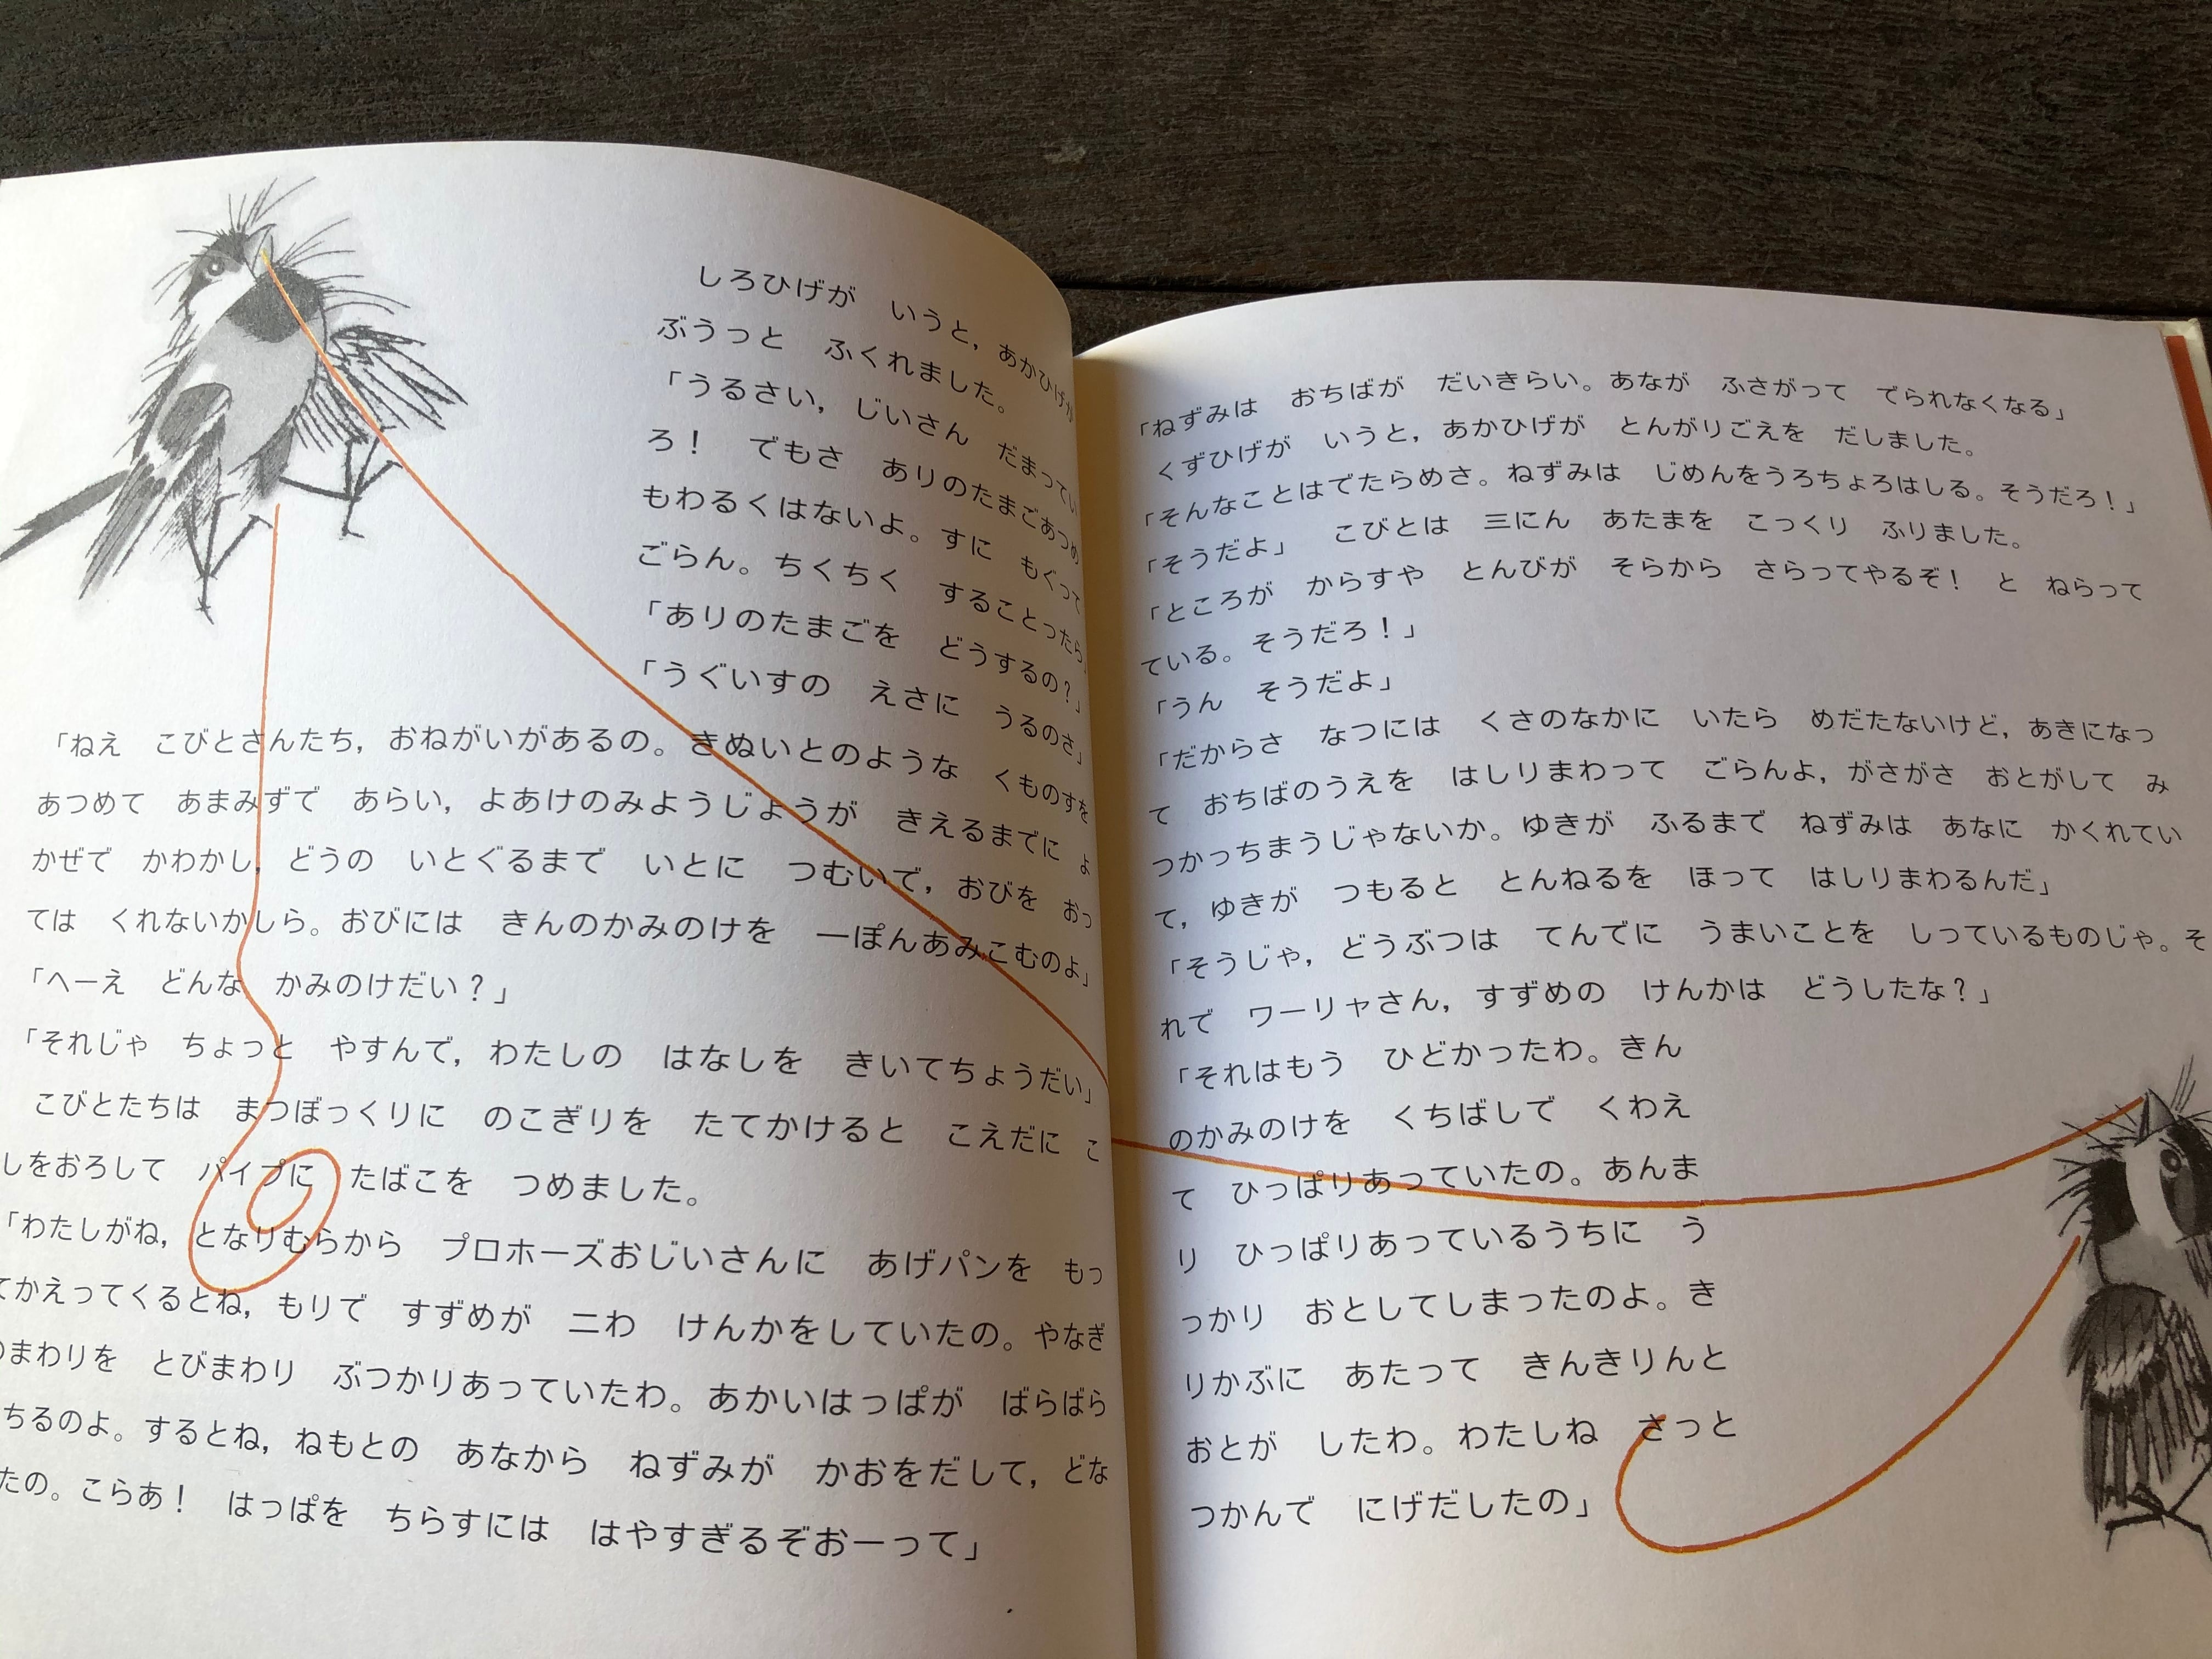 しろひげが　いうと，あかひげが
ぶうっと　ふくれました。
「うるさい，じいさん　だまってい
ろ！　でもさ　ありのたまごあつめ
もわるくはないよ。すに　もぐって
ごらん。ちくちく　することったら
「ありのたまごを　どうするの？」
「うぐいすの　えさに　うるのさ」
「ねえ　こびとさんたち，おねがいがあるの。きぬいとのような　くものすを
あつめて　あまみずで　あらい，よあけのみょうじょうが　きえるまでに　よ
かぜで　かわかし，どうの　いとぐるまで　いとに　つむいで，おびを　おっ
ては　くれないかしら。おびには　きんのかみのけを　一ぽんあみこむのよ」
「へーえ　どんな　かみのけだい？」
「それじゃ　ちょっと　やすんで，わたしの　はなしを　きいてちょうだい」
こびとたちは　まつぼっくりに　のこぎりを　たてかけると　こえだに　こ
しをおろして　パイプに　たばこを　つめました。
「わたしがね，となりむらから　プロホーズおじいさんに　あげパンを　もっ
てかえってくるとね，もりで　すずめが　二わ　けんかをしていたの。やなぎ
のまわりを　とびまわり　ぶつかりあっていたわ。あかいはっぱが　ばらばら
ちるのよ。するとね，ねもとの　あなから　ねずみが　かおをだして，どな
たの。こらあ！　はっぱを　ちらすには　はやすぎるぞおーって」
「ねずみは　おちばが　だいきらい。あなが　ふさがって　でられなくなる」
くずひげが　いうと，あかひげが　とんがりごえを　だしました。
「そんなことはでたらめさ。ねずみは　じめんをうろちょろはしる。そうだろ！」
「そうだよ」　こびとは　三にん　あたまを　こっくり　ふりました。
「ところが　からすや　とんびが　そらから　さらってやるぞ！　と　ねらって
ている。そうだろ！」
「うん　そうだよ」
「だからさ　なつには　くさのなかに　いたら　めだたないけど，あきになっ
て　おちばのうえを　はしりまわって　ごらんよ，がさがさ　おとがして　み
つかっちまうじゃないか。ゆきが　ふるまで　ねずみは　あなに　かくれてい
て，ゆきが　つもると　とんねるを　ほって　はしりまわるんだ」
「そうじゃ，どうぶつは　てんでに　うまいことを　しっているものじゃ。そ
れで　ワーリャさん，すずめの　けんかは　どうしたな？」
「それはもう　ひどかったわ。きん
のかみのけを　くちばしで　くわえ
て　ひっぱりあっていたの。あんま
り　ひっぱりあっているうちに　う
っかり　おとしてしまったのよ。き
りかぶに　あたって　きんきりんと
おとが　したわ。わたしね　さっと
つかんで　にげだしたの」